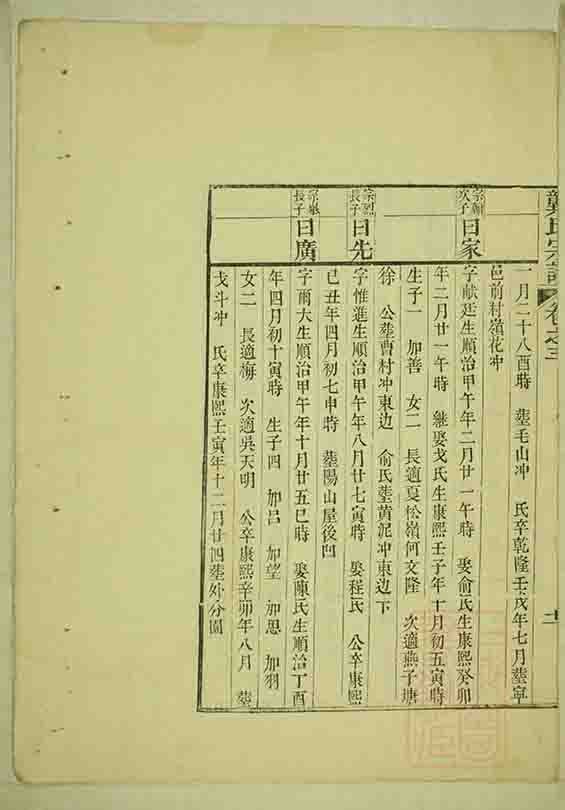 氏宗譜 卷之三
一月二十八酉時 塟毛山冲 氏卒乾隆壬戌年七月塟寧
邑前村嶺花冲
次子 曰家
字献廷生順治甲午年二月廿一午時 娶俞氏生康熙癸卯
年二月廿一午時 繼娶戈氏生康熙壬子年十月初五寅時
生子一 加善 女二 長適夏松嶺何文隆 次適燕子塘
徐 公塟曹村冲東边 俞氏塟黄泥冲東边下
宗烈長子 曰先
字惟進生順治甲午年八月廿七寅時 娶程氏 公卒康熙
己丑年四月初七申時 塟陽山屋後凹
長子 曰廣
字爾大生順治甲午年十月廿五巳時 娶陳氏生順治丁酉
年四月初十寅時 生子四 加吕 加望 加思 加羽
女二 長適梅 次適吳天明 公卒康熙辛卯年八月 塟
戈斗冲 氏卒康熙壬寅年十二月廿四塟外分園